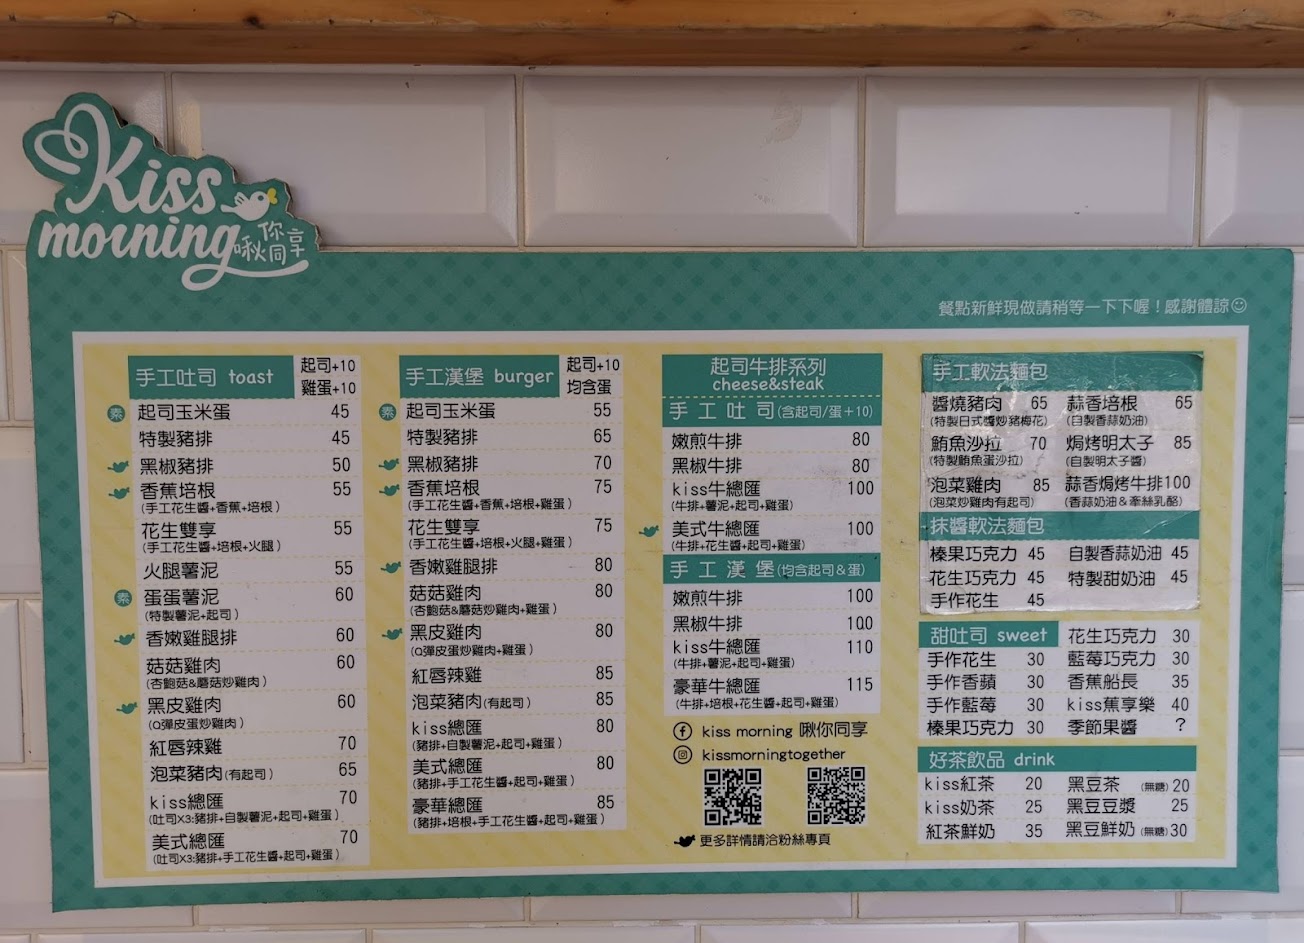 Kiss
morning
啾你同享
餐點新鮮現做請稍等一下下喔！感謝體諒☺
手工吐司 toast
起司+10
雞蛋+10
素 起司玉米蛋 45
特製豬排 45
黑椒豬排 50
香蕉培根 55
(手工花生醬+香蕉+培根)
花生雙享 55
(手工花生醬+培根+火腿)
火腿薯泥 55
素 蛋蛋薯泥 60
(特製薯泥+起司)
香嫩雞腿排 60
菇菇雞肉 60
(杏鮑菇&蘑菇炒雞肉)
黑皮雞肉 60
(Q彈皮蛋炒雞肉)
紅唇辣雞 70
泡菜豬肉(有起司) 65
kiss總匯 70
(吐司X3:豬排+自製薯泥+起司+雞蛋)
美式總匯 70
(吐司X3:豬排+手工花生醬+起司+雞蛋)
手工漢堡 burger
起司+10
均含蛋
素 起司玉米蛋 55
特製豬排 65
黑椒豬排 70
香蕉培根 75
(手工花生醬+香蕉+培根+雞蛋)
花生雙享 75
(手工花生醬+培根+火腿+雞蛋)
香嫩雞腿排 80
菇菇雞肉 80
(杏鮑菇&蘑菇炒雞肉+雞蛋)
黑皮雞肉 80
(Q彈皮蛋炒雞肉+雞蛋)
紅唇辣雞 85
泡菜豬肉(有起司) 85
kiss總匯 80
(豬排+自製薯泥+起司+雞蛋)
美式總匯 80
(豬排+手工花生醬+起司+雞蛋)
豪華總匯 85
(豬排+培根+手工花生醬+起司+雞蛋)
起司牛排系列
cheese&steak
手工吐司(含起司/蛋+10)
嫩煎牛排 80
黑椒牛排 80
kiss牛總匯 100
(牛排+薯泥+起司+雞蛋)
美式牛總匯 100
(牛排+花生醬+起司+雞蛋)
手工漢堡(均含起司&蛋)
嫩煎牛排 100
黑椒牛排 100
kiss牛總匯 110
(牛排+薯泥+起司+雞蛋)
豪華牛總匯 115
(牛排+培根+花生醬+起司+雞蛋)
kiss morning 啾你同享
kissmorningtogether
更多詳情請洽粉絲專頁
手工軟法麵包
醬燒豬肉 65 蒜香培根 65
(特製日式醬炒豬梅花) (自製香蒜奶油)
鮪魚沙拉 70 焗烤明太子 85
(特製鮪魚蛋沙拉) (自製明太子醬)
泡菜雞肉 85 蒜香焗烤牛排100
(泡菜炒雞肉有起司) (香蒜奶油&牽絲乳酪)
抹醬軟法麵包
榛果巧克力 45 自製香蒜奶油 45
花生巧克力 45 特製甜奶油 45
手作花生 45
甜吐司 sweet 花生巧克力 30
手作花生 30 藍莓巧克力 30
手作香蘋 30 香蕉船長 35
手作藍莓 30 kiss蕉享樂 40
榛果巧克力 30 季節果醬 ?
好茶飲品 drink
kiss紅茶 20 黑豆茶 (無糖) 20
kiss奶茶 25 黑豆豆漿 25
紅茶鮮奶 35 黑豆鮮奶 (無糖) 30